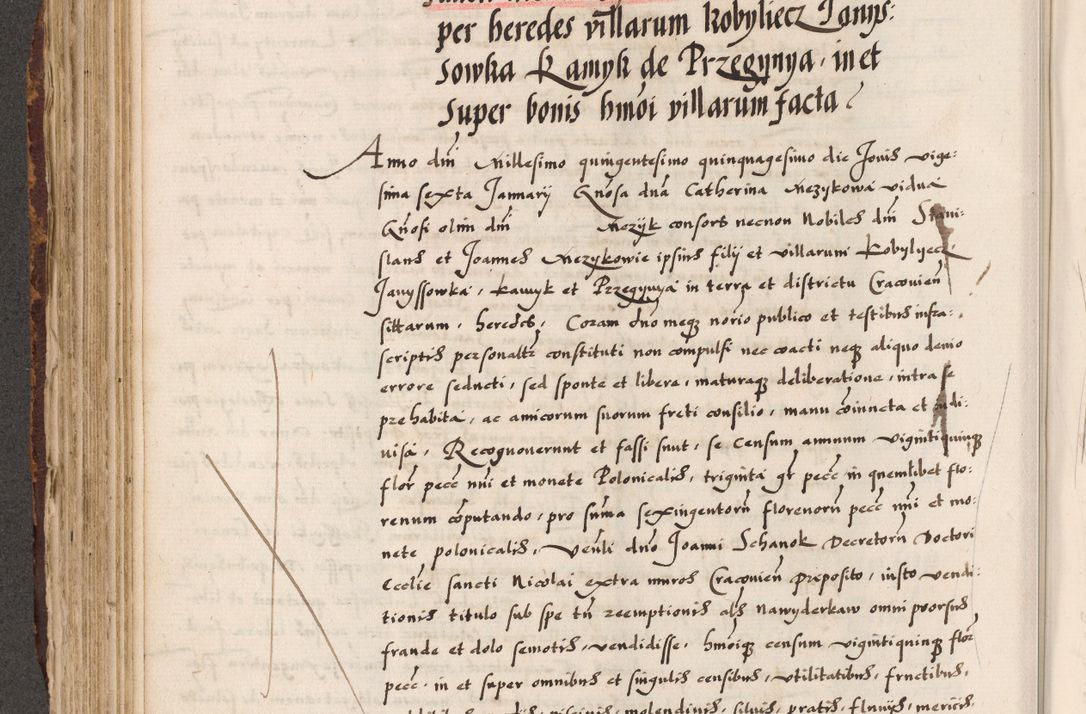 per heredes villarum Kobyliecz Janys:
sowka Kamyk de Przegynya, in et
super bonis hmoi villarum facta
Anno dni Millesimo quingentesimo quinquagesimo die Jovis vige:
sima sexta Januarij Gnosa dna Catherina Mezykowa vidua
Gnosi olim dni Mezyk consors necnon Nobiles dni Stani:
slaus et Joannes Mezykowie ipsius filij et villarum Kobylyecz
Janyssowka, Kamyk et Przegynya in terra et districtu Cracovien
sittarum, heredes, Coram dno meqz norio publico et testibus infra:
scriptis personaltr constituti non compulsi nec coacti neqz aliquo devio
errore seducti, sed sponte et libere, maturaqz deliberatione, intra se
prehabita, ac amicorum suorum freti consilio, manu coiuncta et indi:
visa, Recognoverunt et fassi sunt, se Censum annuum vigintiquinqz
flor pecc nri et monete Polonicalis, triginta gr pecc in quemlibet flo:
renum computando, pro suma sexingentoru florenoru pecc nri et mo:
nete polonicalis, Venli dno Joanni Schanok Decretoru Doctori
Ecclie sancti Nicolai extra muros Cracovien preposito, iusto vendi:
tionis titulo sub spe tn reemptionis als nawyderkaw omni prorsus
fraude et dolo semotis, vendidisse, hmoiqz censum vigintiquinqz flor
pecc in et super omnibus et singulis censibus, utilitatibus, fructibus,
piscinis, molendinis, silvis, pratis, fluvijs, mericis,